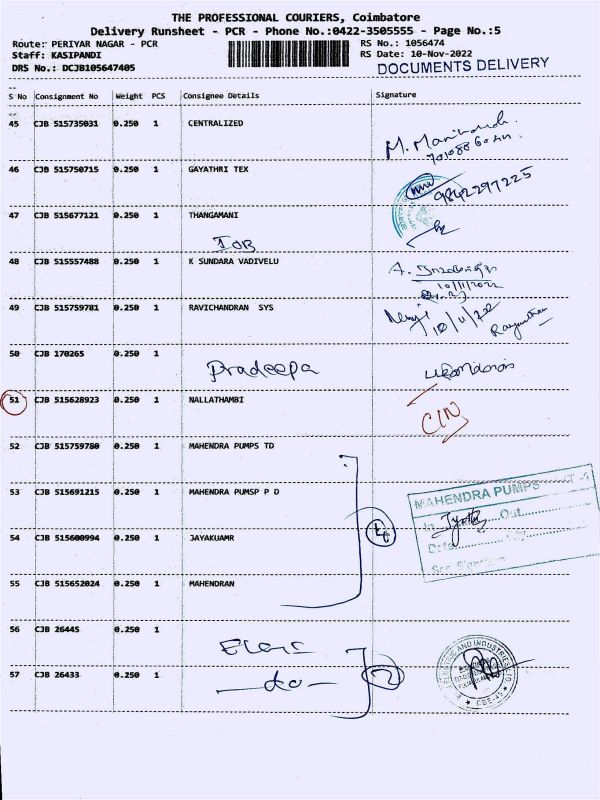 THE PROFESSIONAL COURIERS, Coimbatore
Delivery Runsheet - PCR - Phone No.:0422-3505555 - Page No.:5
Route: PERIYAR NAGAR - PCR RS No.: 1056474
Staff: KASIPANDI RS Date: 10-Nov-2022
DRS No.: DCJB105647405 DOCUMENTS DELIVERY
S No Consignment No Weight PCS Consignee Details Signature
45 CJB 515735031 0.250 1 CENTRALIZED
46 CJB 515750715 0.250 1 GAYATHRI TEX
9842297225
47 CJB 515677121 0.250 1 THANGAMANI
IOB
48 CJB 515557488 0.250 1 K SUNDARA VADIVELU
10/11/2022
49 CJB 515759781 0.250 1 RAVICHANDRAN SYS
10/11/22
50 CJB 170265 0.250 1
Pradeepa
51 CJB 515628923 0.250 1 NALLATHAMBI
C/N
52 CJB 515759780 0.250 1 MAHENDRA PUMPS TD
53 CJB 515691215 0.250 1 MAHENDRA PUMSP P D
MAHENDRA PUMPS
In Out
Date
54 CJB 515600994 0.250 1 JAYAKUAMR
4
55 CJB 515652024 0.250 1 MAHENDRAN
56 CJB 26445 0.250 1
57 CJB 26433 0.250 1
do
2